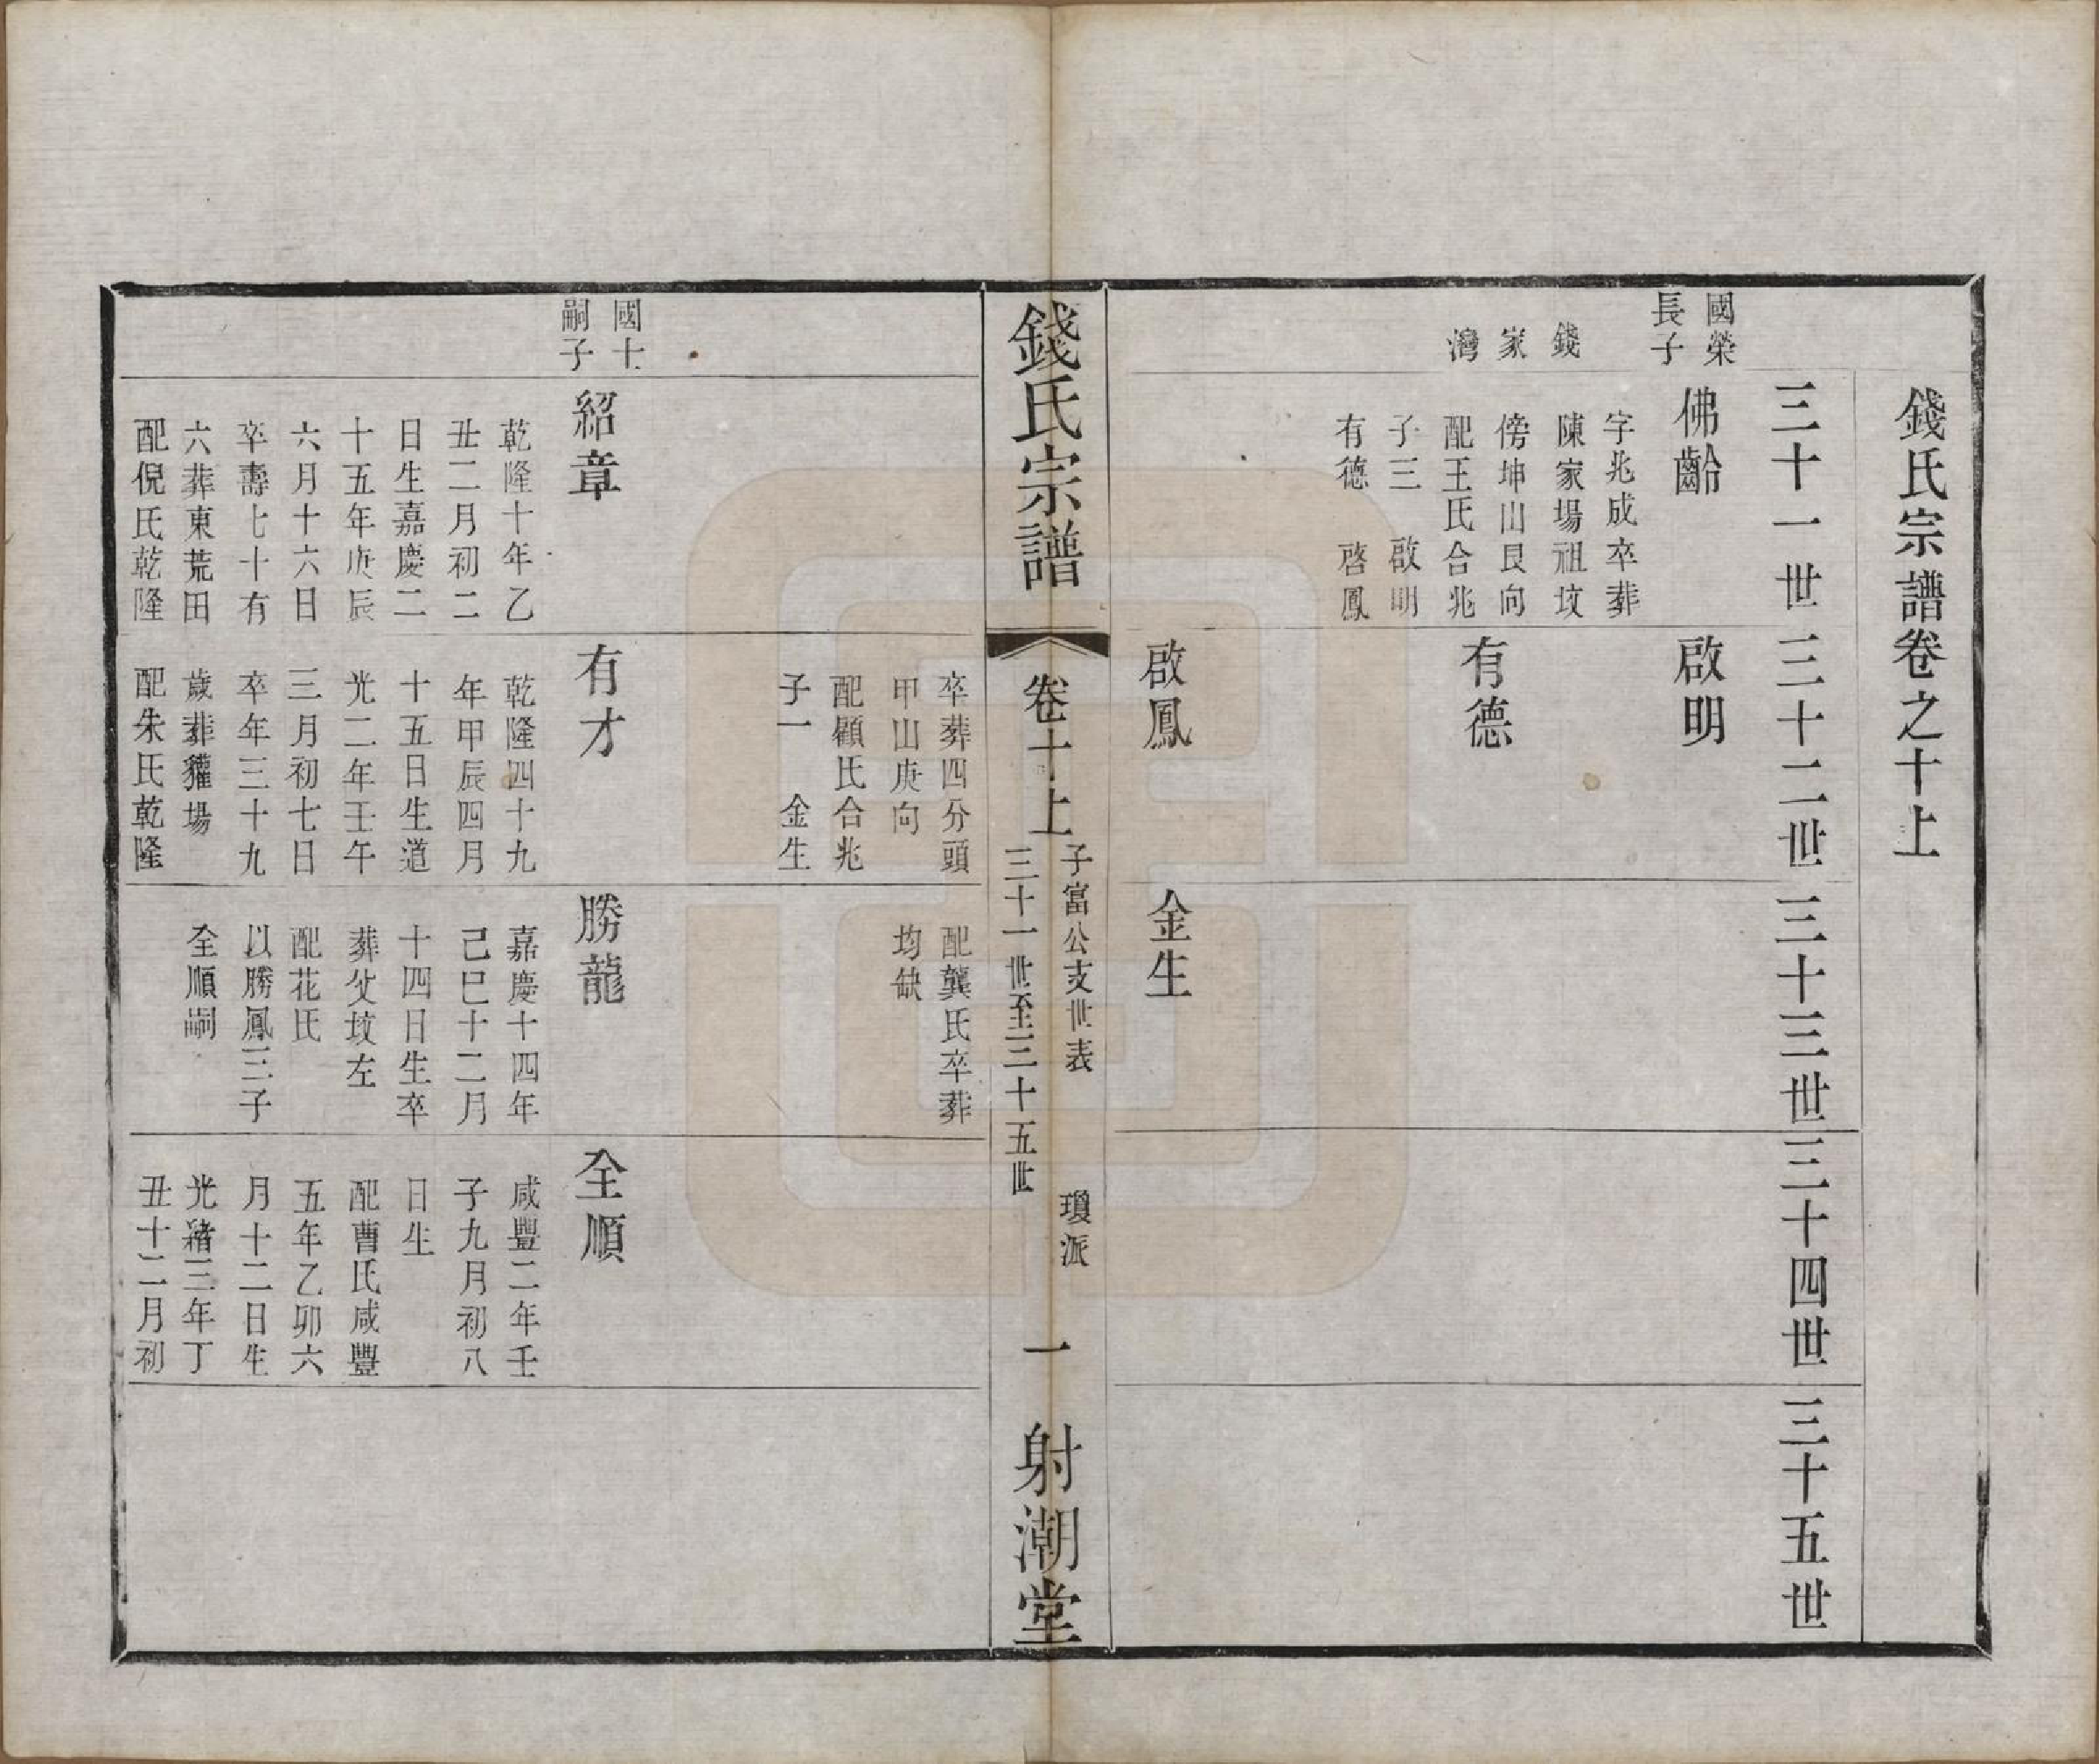 錢氏宗譜卷之十上
三十一世
三十二世
三十三世
三十四世
三十五世
國榮
長子
錢
家
灣
佛齡
字兆成卒葬
陳家場祖坟
傍坤山艮向
配王氏合兆
子三 啟明
有德 啓鳳
啟明
有德
啟鳳
金生
錢氏宗譜
卷十上
子富公支世表 瓊派
三十一世至三十五世
一
射潮堂
卒葬四分頭
甲山庚向
配顧氏合兆
子一 金生
配龔氏卒葬
均缺
國士
嗣子
紹章
乾隆十年乙
丑二月初二
日生嘉慶二
十五年庚辰
六月十六日
卒壽七十有
六葬東荒田
配倪氏乾隆
有才
乾隆四十九
年甲辰四月
十五日生道
光二年壬午
三月初七日
卒年三十九
歲葬獾場
配朱氏乾隆
勝龍
嘉慶十四年
己巳十二月
十四日生卒
葬父坟左
配花氏
以勝鳳三子
全順嗣
全順
咸豐二年壬
子九月初八
日生
配曹氏咸豐
五年乙卯六
月十二日生
光緒三年丁
丑十二月初